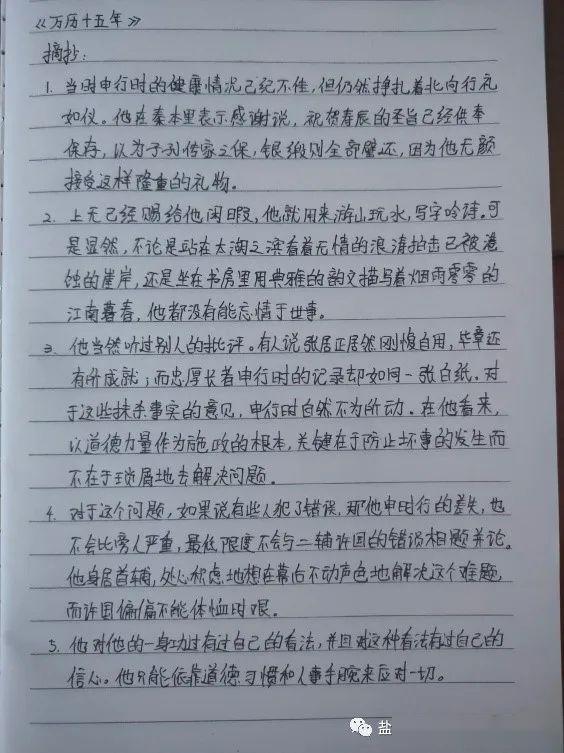 《万历十五年》
摘抄：
1. 当时申行时的健康情况已经不佳，但仍然挣扎着北向行礼
如仪。他在奏本里表示感谢说，祝贺寿辰的圣旨已经供奉
保存，以为子孙传家之保，银缎则全部璧还，因为他无颜
接受这样隆重的礼物。
2. 上天已经赐给他闲暇，他就用来游山玩水，写字吟诗。可
是显然，不论是站在太湖之滨看着无情的浪涛拍击已被浸
蚀的崖岸，还是坐在书房里用典雅的韵文描写着烟雨零零的
江南暮春，他都没有能忘情于世事。
3. 他当然听过别人的批评。有人说张居正居然刚愎自用，毕竟还
有所成就；而忠厚长者申行时的记录却如同一张白纸。对
于这些抹杀事实的意见，申行时自然不为所动。在他看来，
以道德力量作为施政的根本，关键在于防止坏事的发生而
不在于琐屑地去解决问题。
4. 对于这个问题，如果说有些人犯了错误，那他申时行的差失，也
不会比旁人严重，最低限度不会与二辅许国的错误相题并论。
他身居首辅，处心积虑地想在幕后不动声色地解决这个难题，
而许国偏偏不能体恤时艰。
5. 他对他的一身功过有过自己的看法，并且对这种看法有过自己的
信心。他只能依靠道德习惯和人事手腕来应对一切。
盐